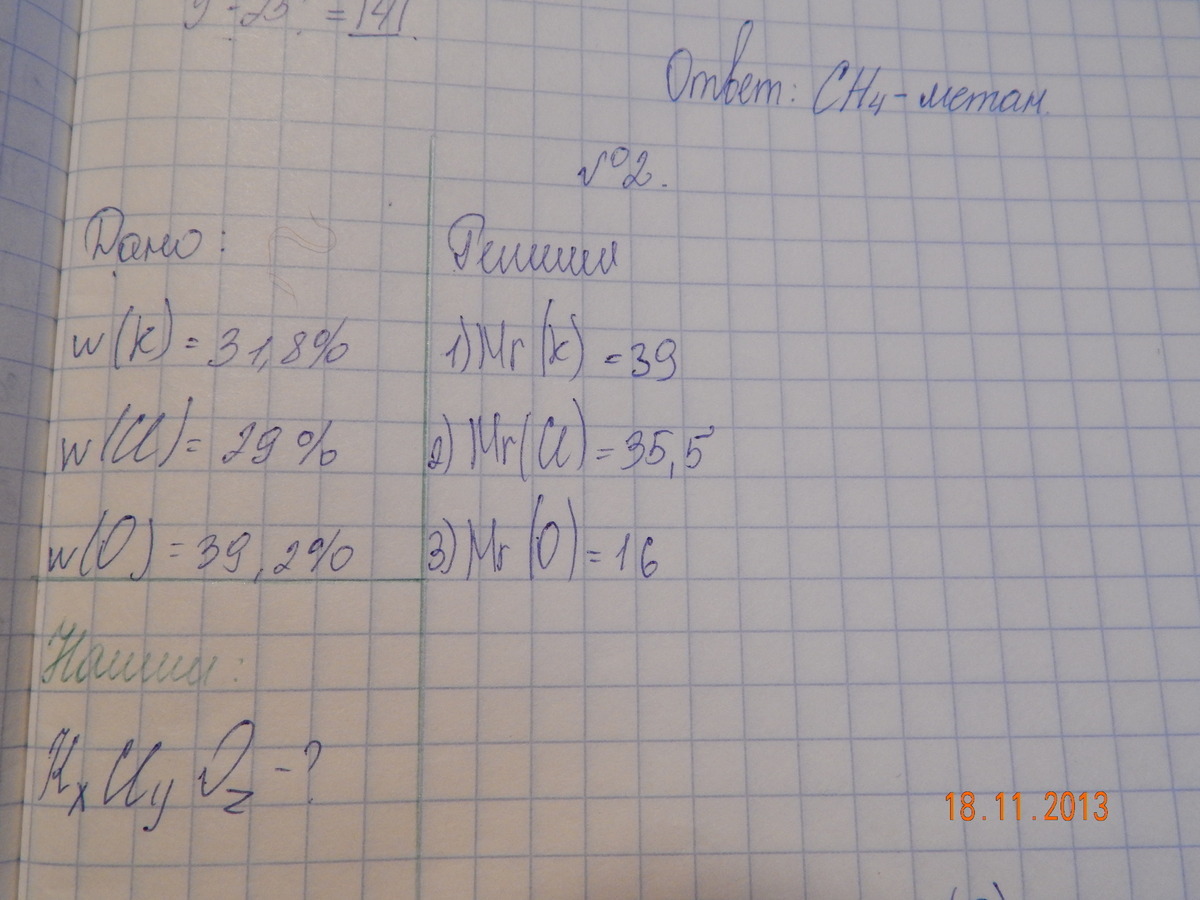 = 141
Ответ: CH4 - метан.
№2.
Дано:
Решим
w(K) = 31,8%
1) Mr (K) = 39
w(Cl) = 29%
2) Mr(Cl) = 35,5
w(O) = 39,2%
3) Mr (O) = 16
KxClyOz - ?
18.11.2013